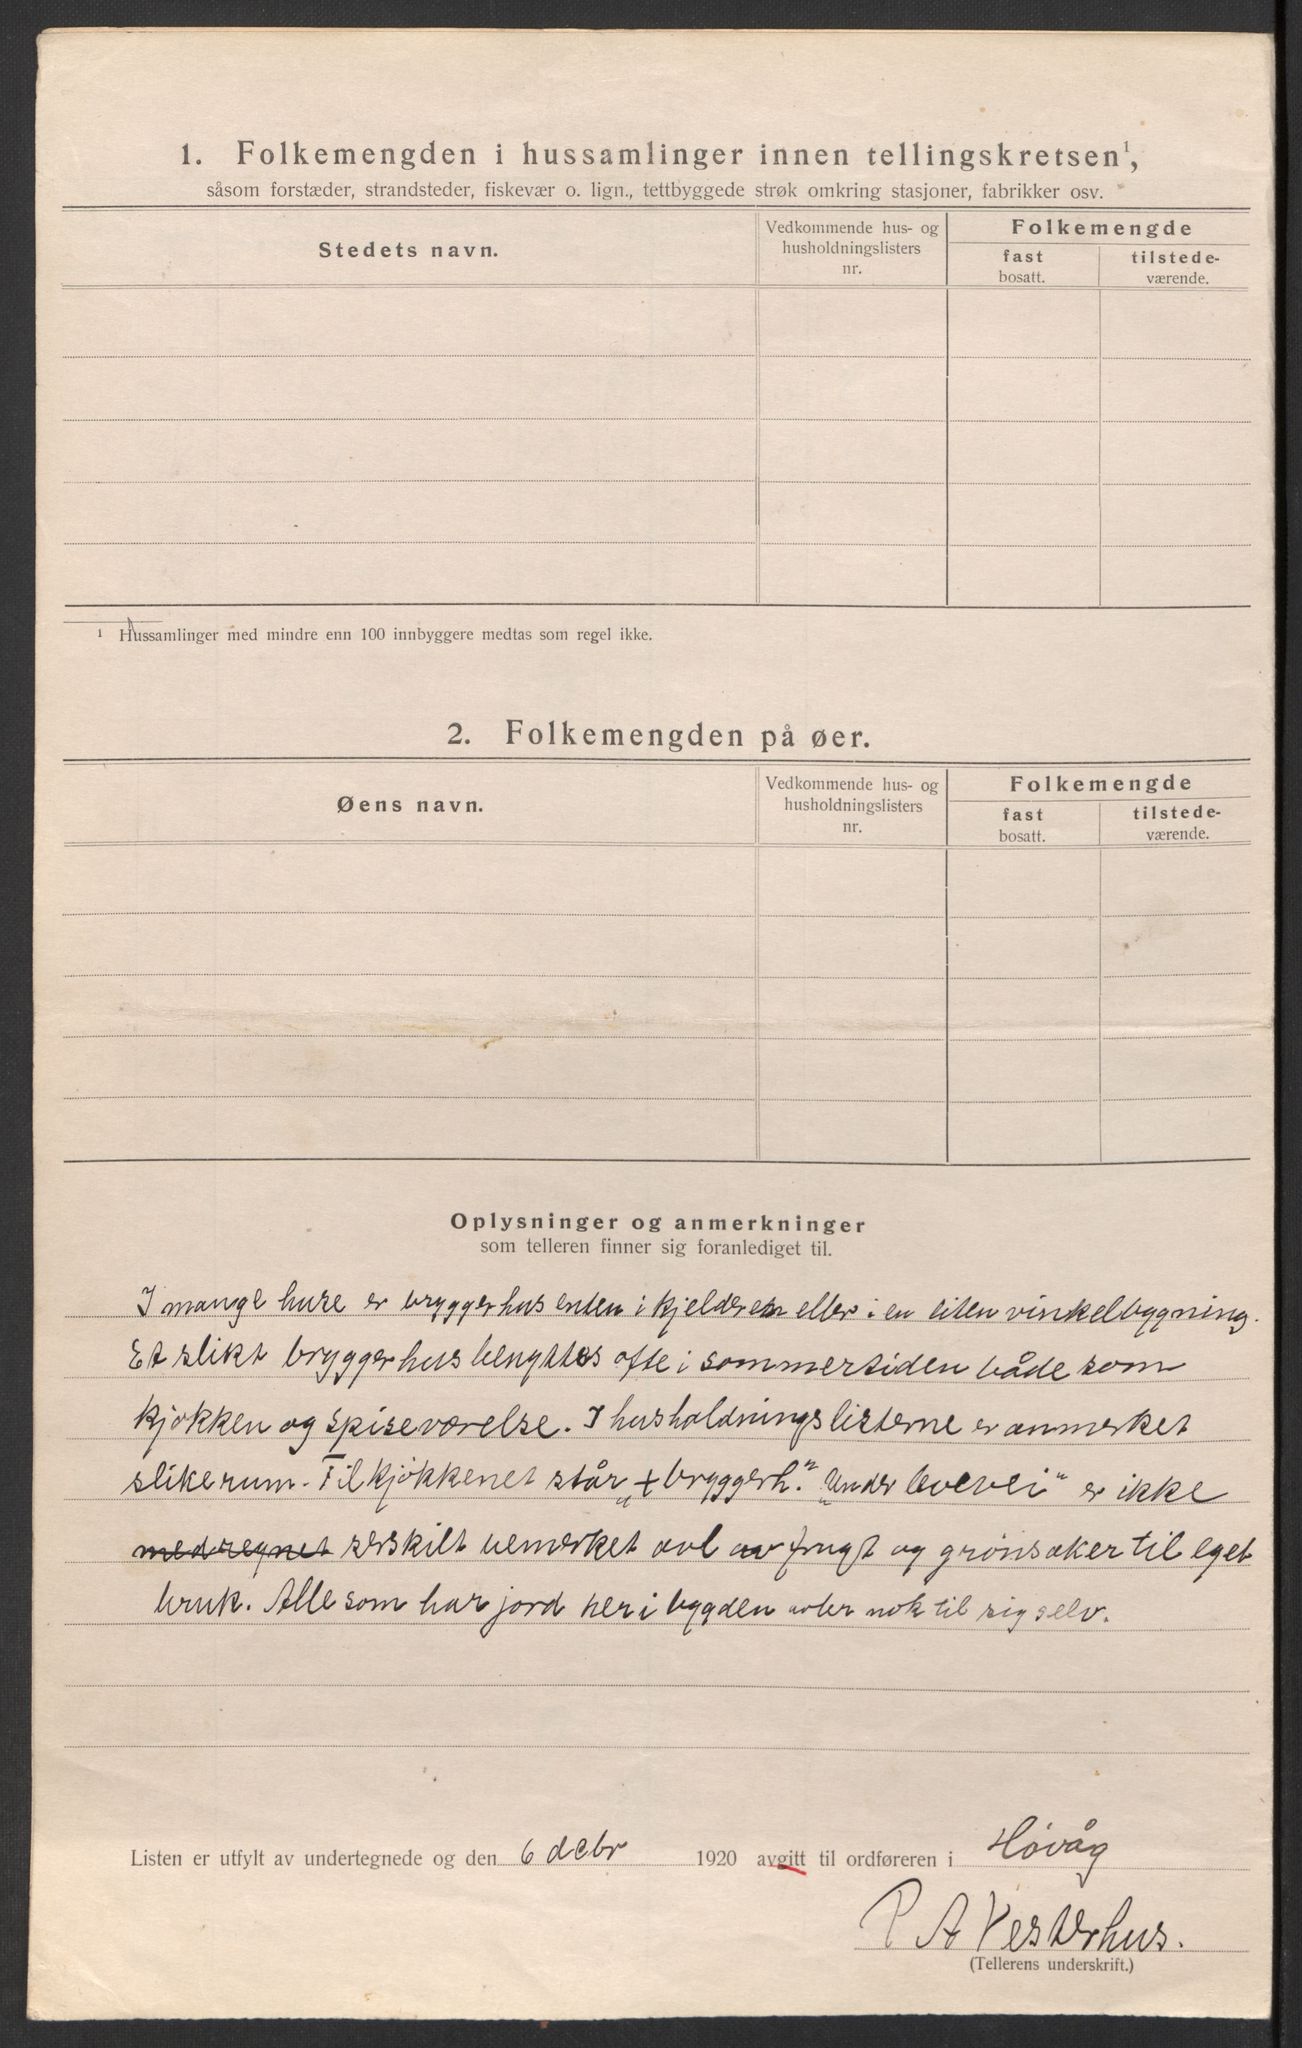 1. Folkemengden i hussamlinger innen tellingskretsen¹,
såsom forstæder, strandsteder, fiskevær o. lign., tettbyggede strøk omkring stasjoner, fabrikker osv.
Stedets navn.
Vedkommende hus- og
husholdningslisters
nr.
Folkemengde
fast
bosatt.
tilstede-
værende.
¹ Hussamlinger med mindre enn 100 innbyggere medtas som regel ikke.
2. Folkemengden på øer.
Øens navn.
Vedkommende hus- og
husholdningslisters
nr.
Folkemengde
fast
bosatt.
tilstede-
værende.
Oplysninger og anmerkninger
som telleren finner sig foranlediget til.
I mange huse er bryggerhus enten i kjelderen eller i en liten vinkelbygning.
Et slikt bryggerhus benyttes ofte i sommertiden både som
kjøkken og spiseværelse. I husholdningslisterne er anmerket
slike rum. Til kjøkkenet står „+ bryggerh.“ „Under levevei“ er ikke
medregnet særskilt bemerket avl av frugt og grønsaker til eget
bruk. Alle som har jord her i bygden avler nok til sig selv.
Listen er utfylt av undertegnede og den 6 debr 1920 avgitt til ordføreren i Høvåg
P A Vesterhus.
(Tellerens underskrift.)